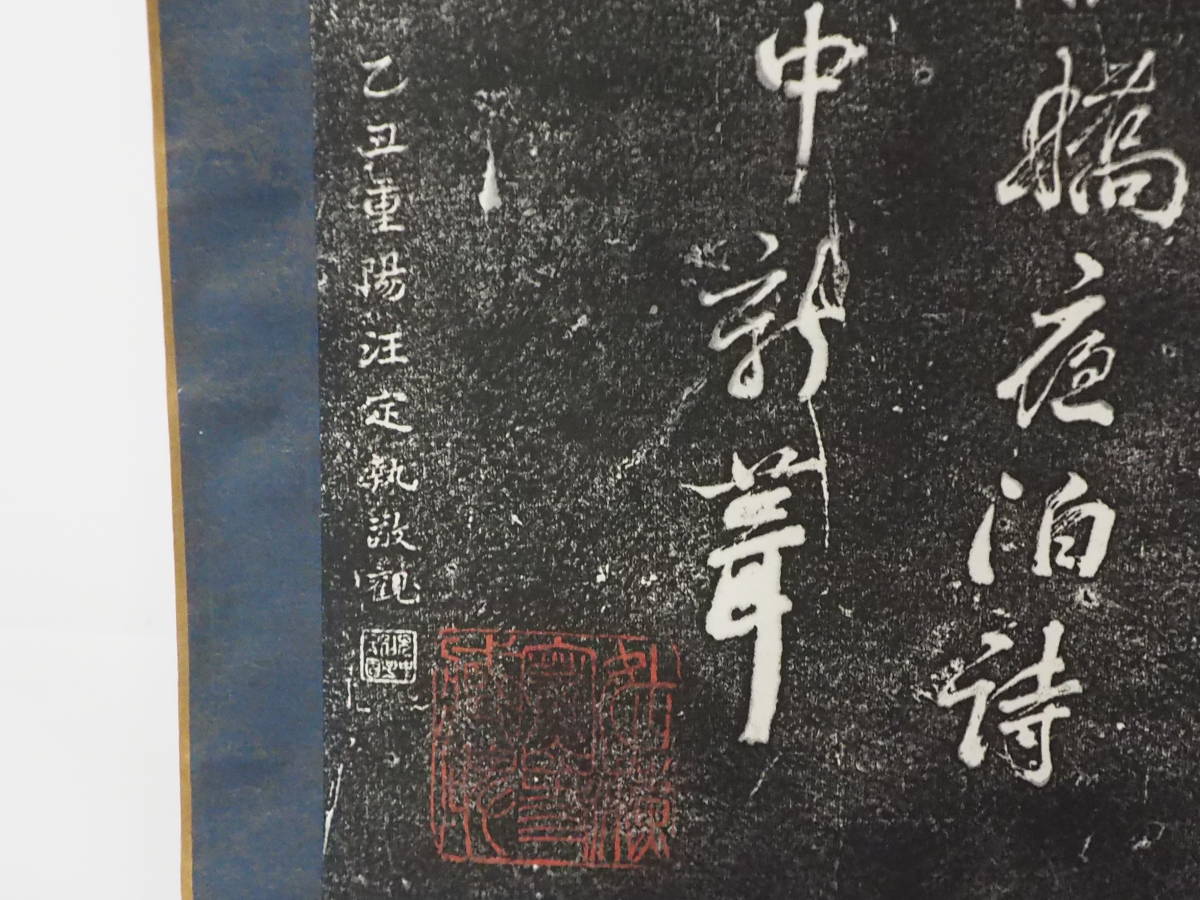 橋夜泊詩
中新葺
乙丑重陽汪定執敬觀